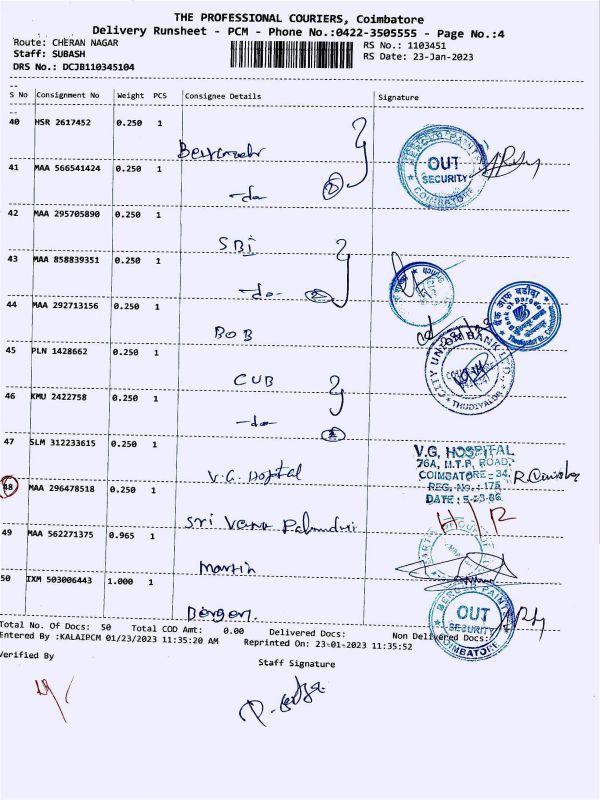 THE PROFESSIONAL COURIERS, Coimbatore
Delivery Runsheet - PCM - Phone No.:0422-3505555 - Page No.:4
Route: CHERAN NAGAR
Staff: SUBASH
DRS No.: DCJB110345104
RS No.: 1103451
RS Date: 23-Jan-2023
S No Consignment No Weight PCS Consignee Details Signature
40 HSR 2617452 0.250 1
BERGER PAINT OUT SECURITY COIMBATORE
41 MAA 566541424 0.250 1
-do-
42 MAA 295705890 0.250 1
SBI
43 MAA 858839351 0.250 1
-do-
44 MAA 292713156 0.250 1
BOB
45 PLN 1428662 0.250 1
CUB
CITY UNION BANK LTD., THUDIYALUR
46 KMU 2422758 0.250 1
-do-
47 SLM 312233615 0.250 1
V.G. Hospital
V.G. HOSPITAL
76A, M.T.P. ROAD,
COIMBATORE - 34.
REG. NO. : 175
48 MAA 296478518 0.250 1
Sri
49 MAA 562271375 0.965 1
Martin
50 IXM 503006443 1.000 1
Berger.
BERGER PAINT OUT SECURITY COIMBATORE
Total No. Of Docs: 50 Total COD Amt: 0.00 Delivered Docs: Non Delivered Docs:
Entered By :KALAIPCM 01/23/2023 11:35:20 AM Reprinted On: 23-01-2023 11:35:52
Verified By
Staff Signature